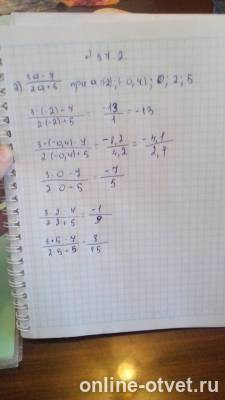 2) (3a-7)/(2a+5) при a=-2; (-0,4); 0; 2; 5
(3·(-2)-7)/(2·(-2)+5) = -13/1 = -13
(3·(-0,4)-7)/(2·(-0,4)+5) = -8,2/4,2 = -4,1/2,1
(3·0-7)/(2·0+5) = -7/5
(3·2-7)/(2·2+5) = -1/9
(3·5-7)/(2·5+5) = 8/15
online-otvet.ru